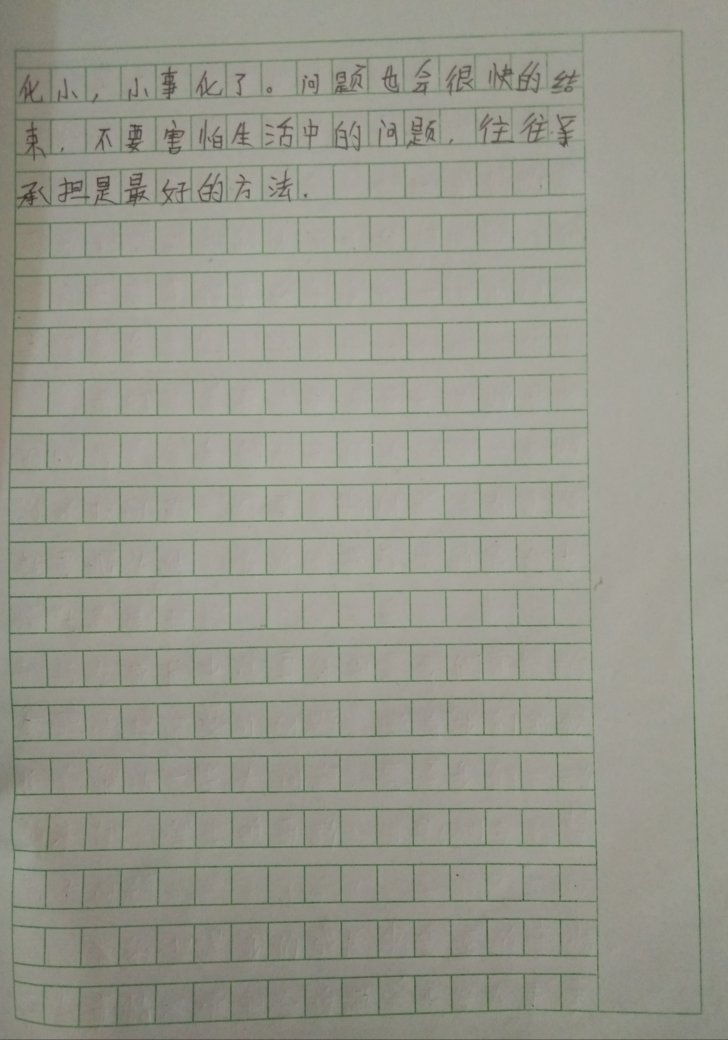 化小，小事化了。问题也会很快的结
束．不要害怕生活中的问题．往往
承担是最好的方法．